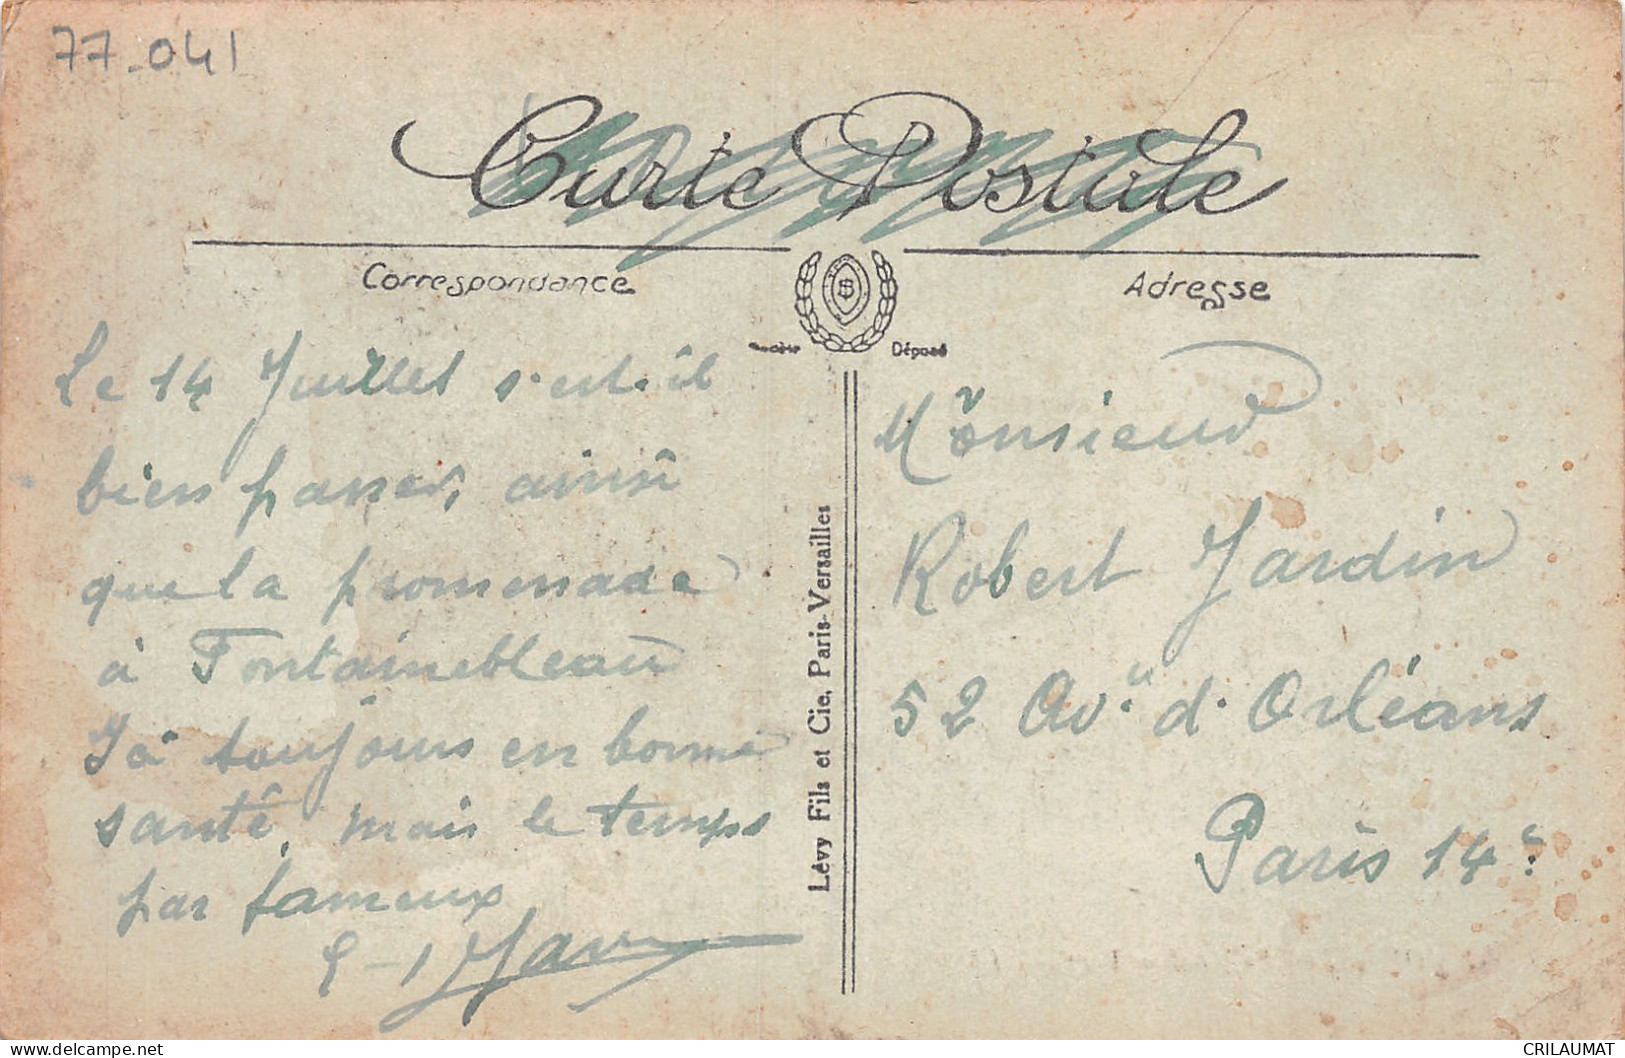 77-041
Carte Postale
Correspondance
Adresse
Déposé
Le 14 Juillet s'est-il
bien passer, ainsi
que la promenade
à Fontainebleau
Ici toujours en bonne
santé, mais le temps
pas fameux
Lévy Fils et Cie, Paris-Versailles
Monsieur
Robert Jardin
52 Av.u d. Orléans
Paris 14e
CRILAUMAT